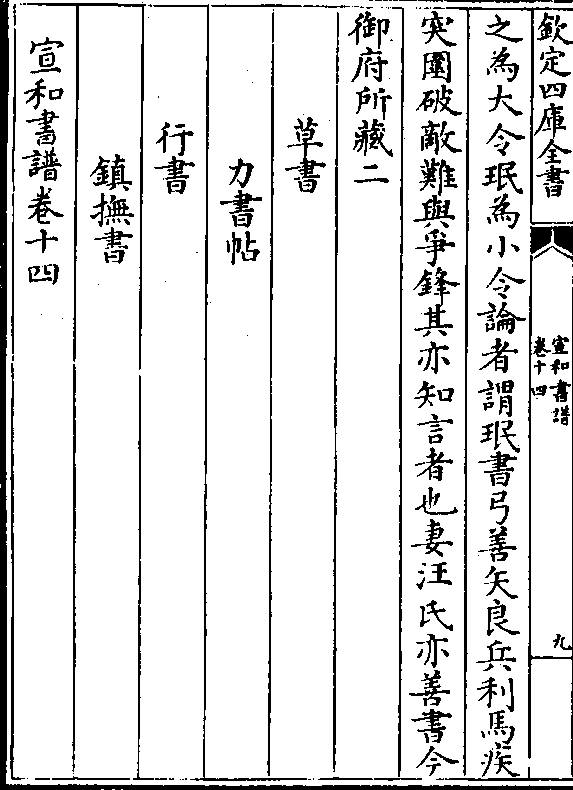 欽定四庫全書
宣和書譜
卷十四
九
之為大令珉為小令論者謂珉書弓善矢良兵利馬疾
突圍破敵難與爭鋒其亦知言者也妻汪氏亦善書今
御府所藏二
草書
力書帖
行書
鎮撫書
宣和書譜卷十四